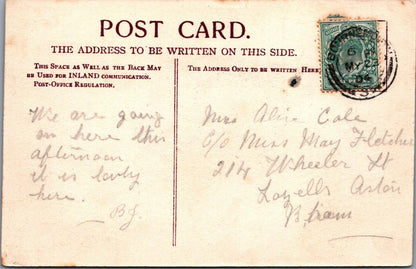 POST CARD.
THE ADDRESS TO BE WRITTEN ON THIS SIDE.
THIS SPACE AS WELL AS THE BACK MAY
BE USED FOR INLAND COMMUNICATION.
POST-OFFICE REGULATION.
THE ADDRESS ONLY TO BE WRITTEN HERE
We are going
on here this
afternoon
it is lovely
here.
BJ.
MY
04
Miss Alice Cole
C/o Miss May Fletcher
214 Wheeler St
Lozells Aston
B'ham